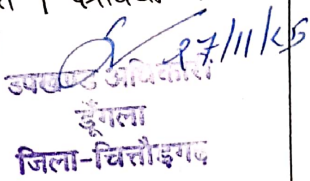 27/11/25
उपखण्ड अधिकारी
डूँगला
जिला-चित्तौड़गढ़